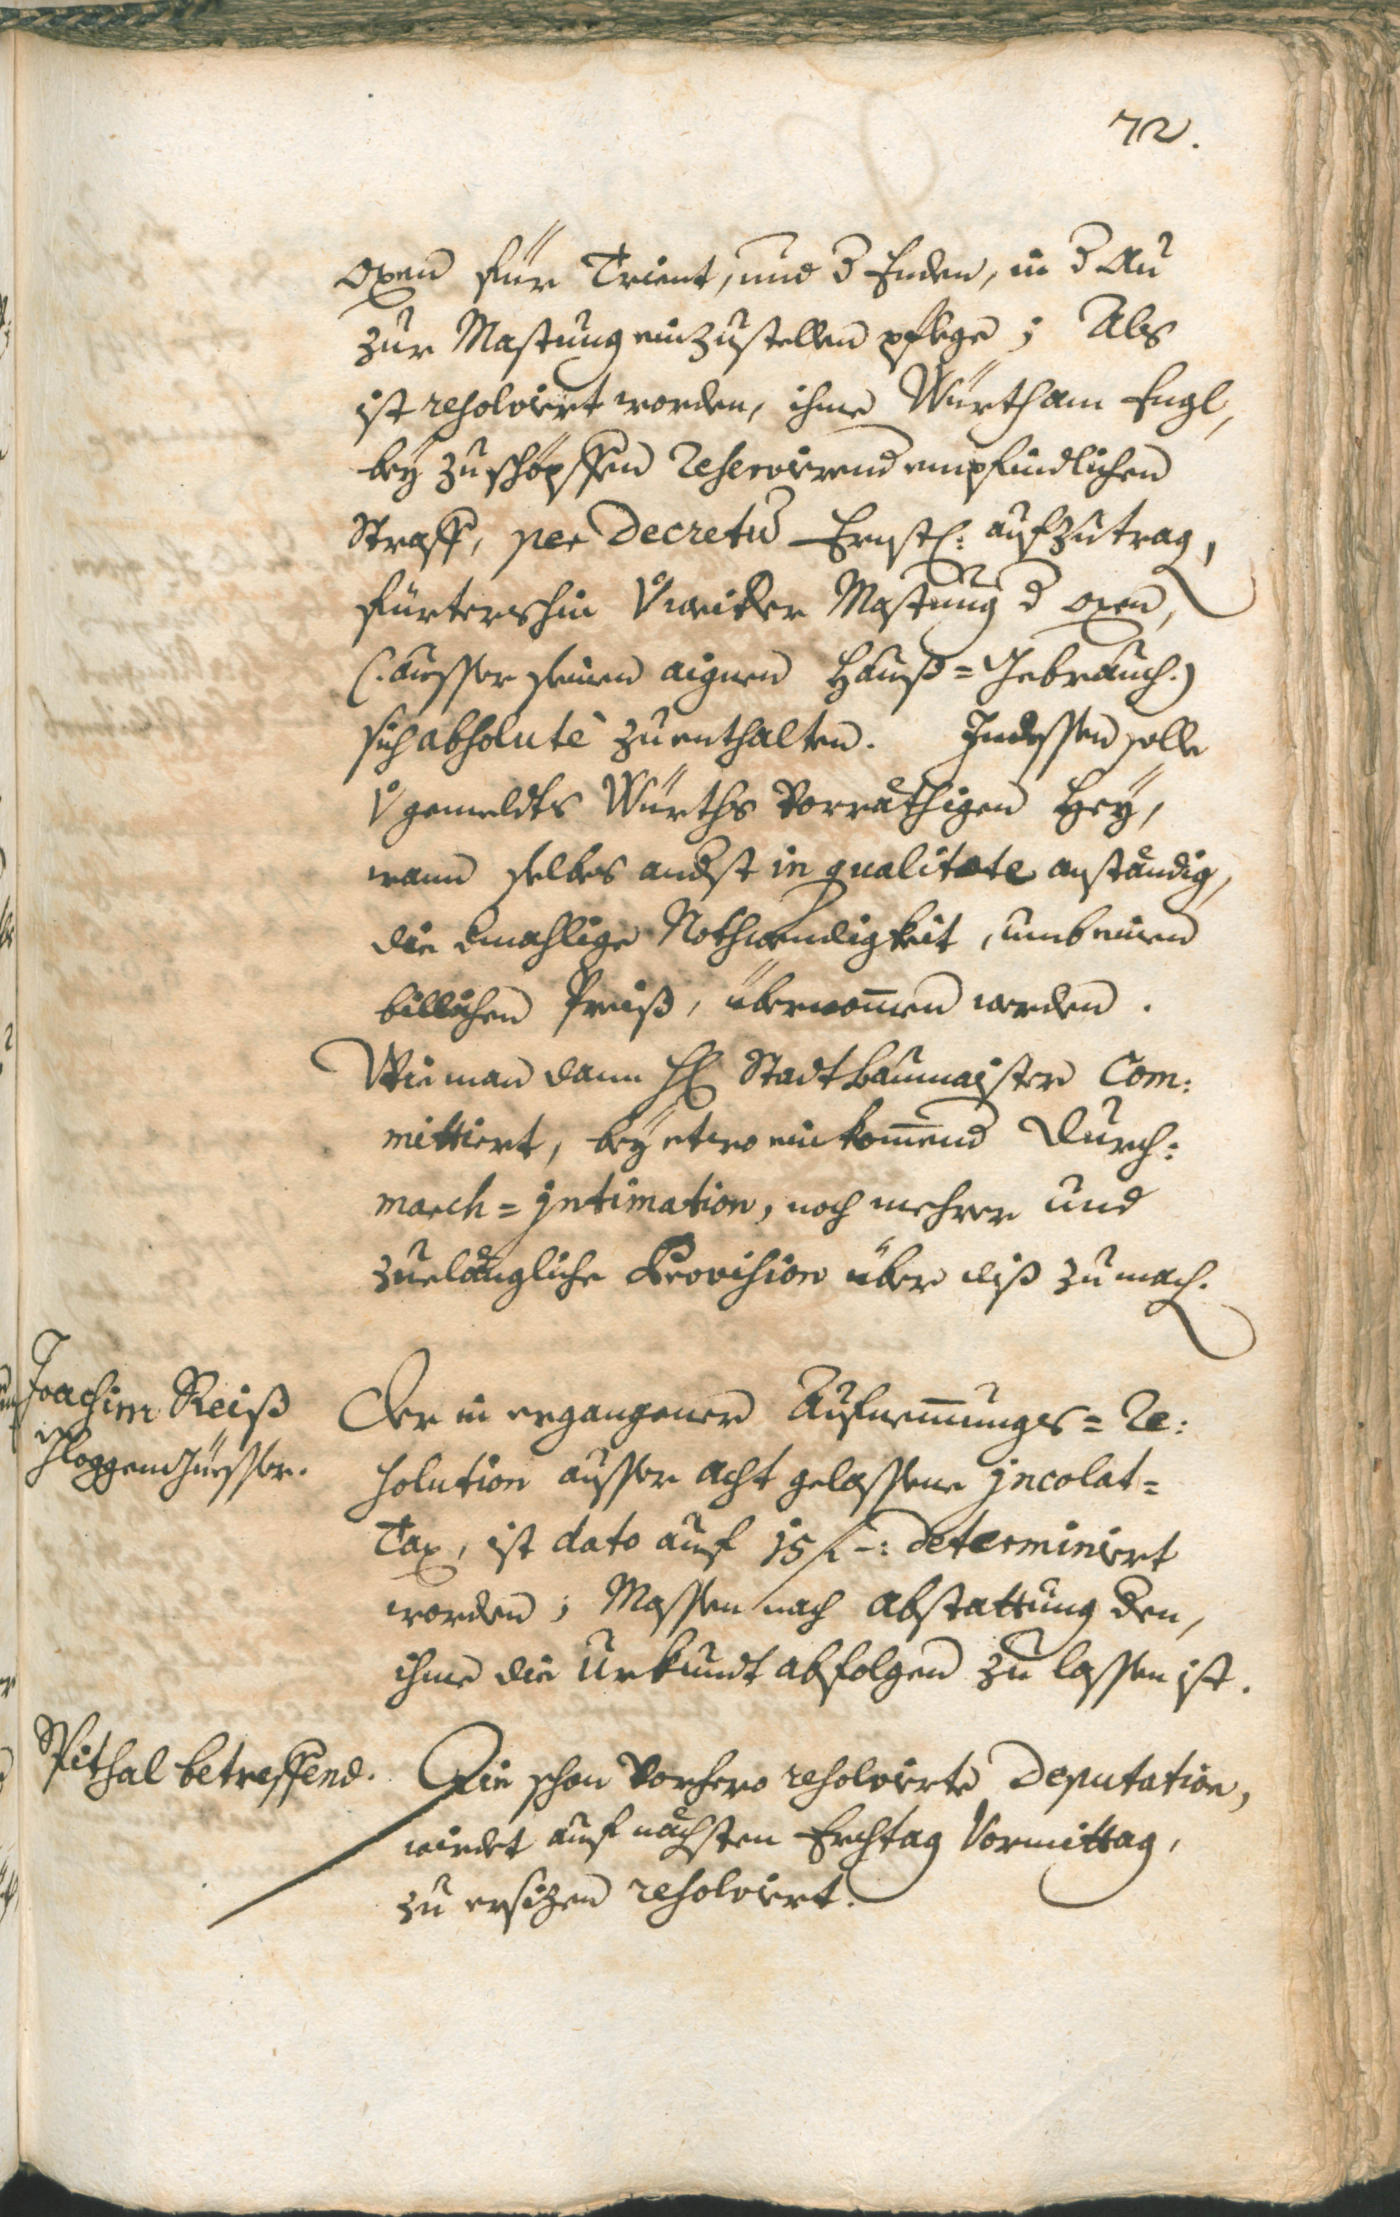 72.
Oxen für Trient, und d Enden, in d Au
zur Mastung einzustellen pflege; Als
ist resolviert worden, ihme Würth am Engl,
bey zuschöpffen reservirend empfindlichen
Straff, per Decretu Ernstl: aufzutrag,
fürtershin weiter Mastung d oxen,
(: ausser seinen aignen Hauß=Gebrauch:)
sich absolutè zu enthalten. Indessen solle
gemeldts Würths Vorräthigen Hey,
wann selbes andst in qualitate anständig,
die dmahlige Nothwendigkeit, umb einen
billichen Preiß, übernom̄en werden.
Wie man dann H Stadt Baumaister Com:
mittiert, bey etwo einkom̄end Durch:
march=Intimation, noch mehrer und
zuelängliche Provision über diß zu mach.
Joachim Reiß
Gloggengiesser.
Der in ergangener Aufnem̄ungs=Re:
solution ausser acht gelassene Incolat=
Tax, ist dato auf 15 f -: determiniert
worden; Massen nach abstattung den,
ihme die Urkundt abfolgen zu lassen ist.
Spithal betreffend.
Die schon Vorhero resolvirte Deputation,
wirdet auf nächsten Erchtag Vormittag,
zu ersizen resolviert.